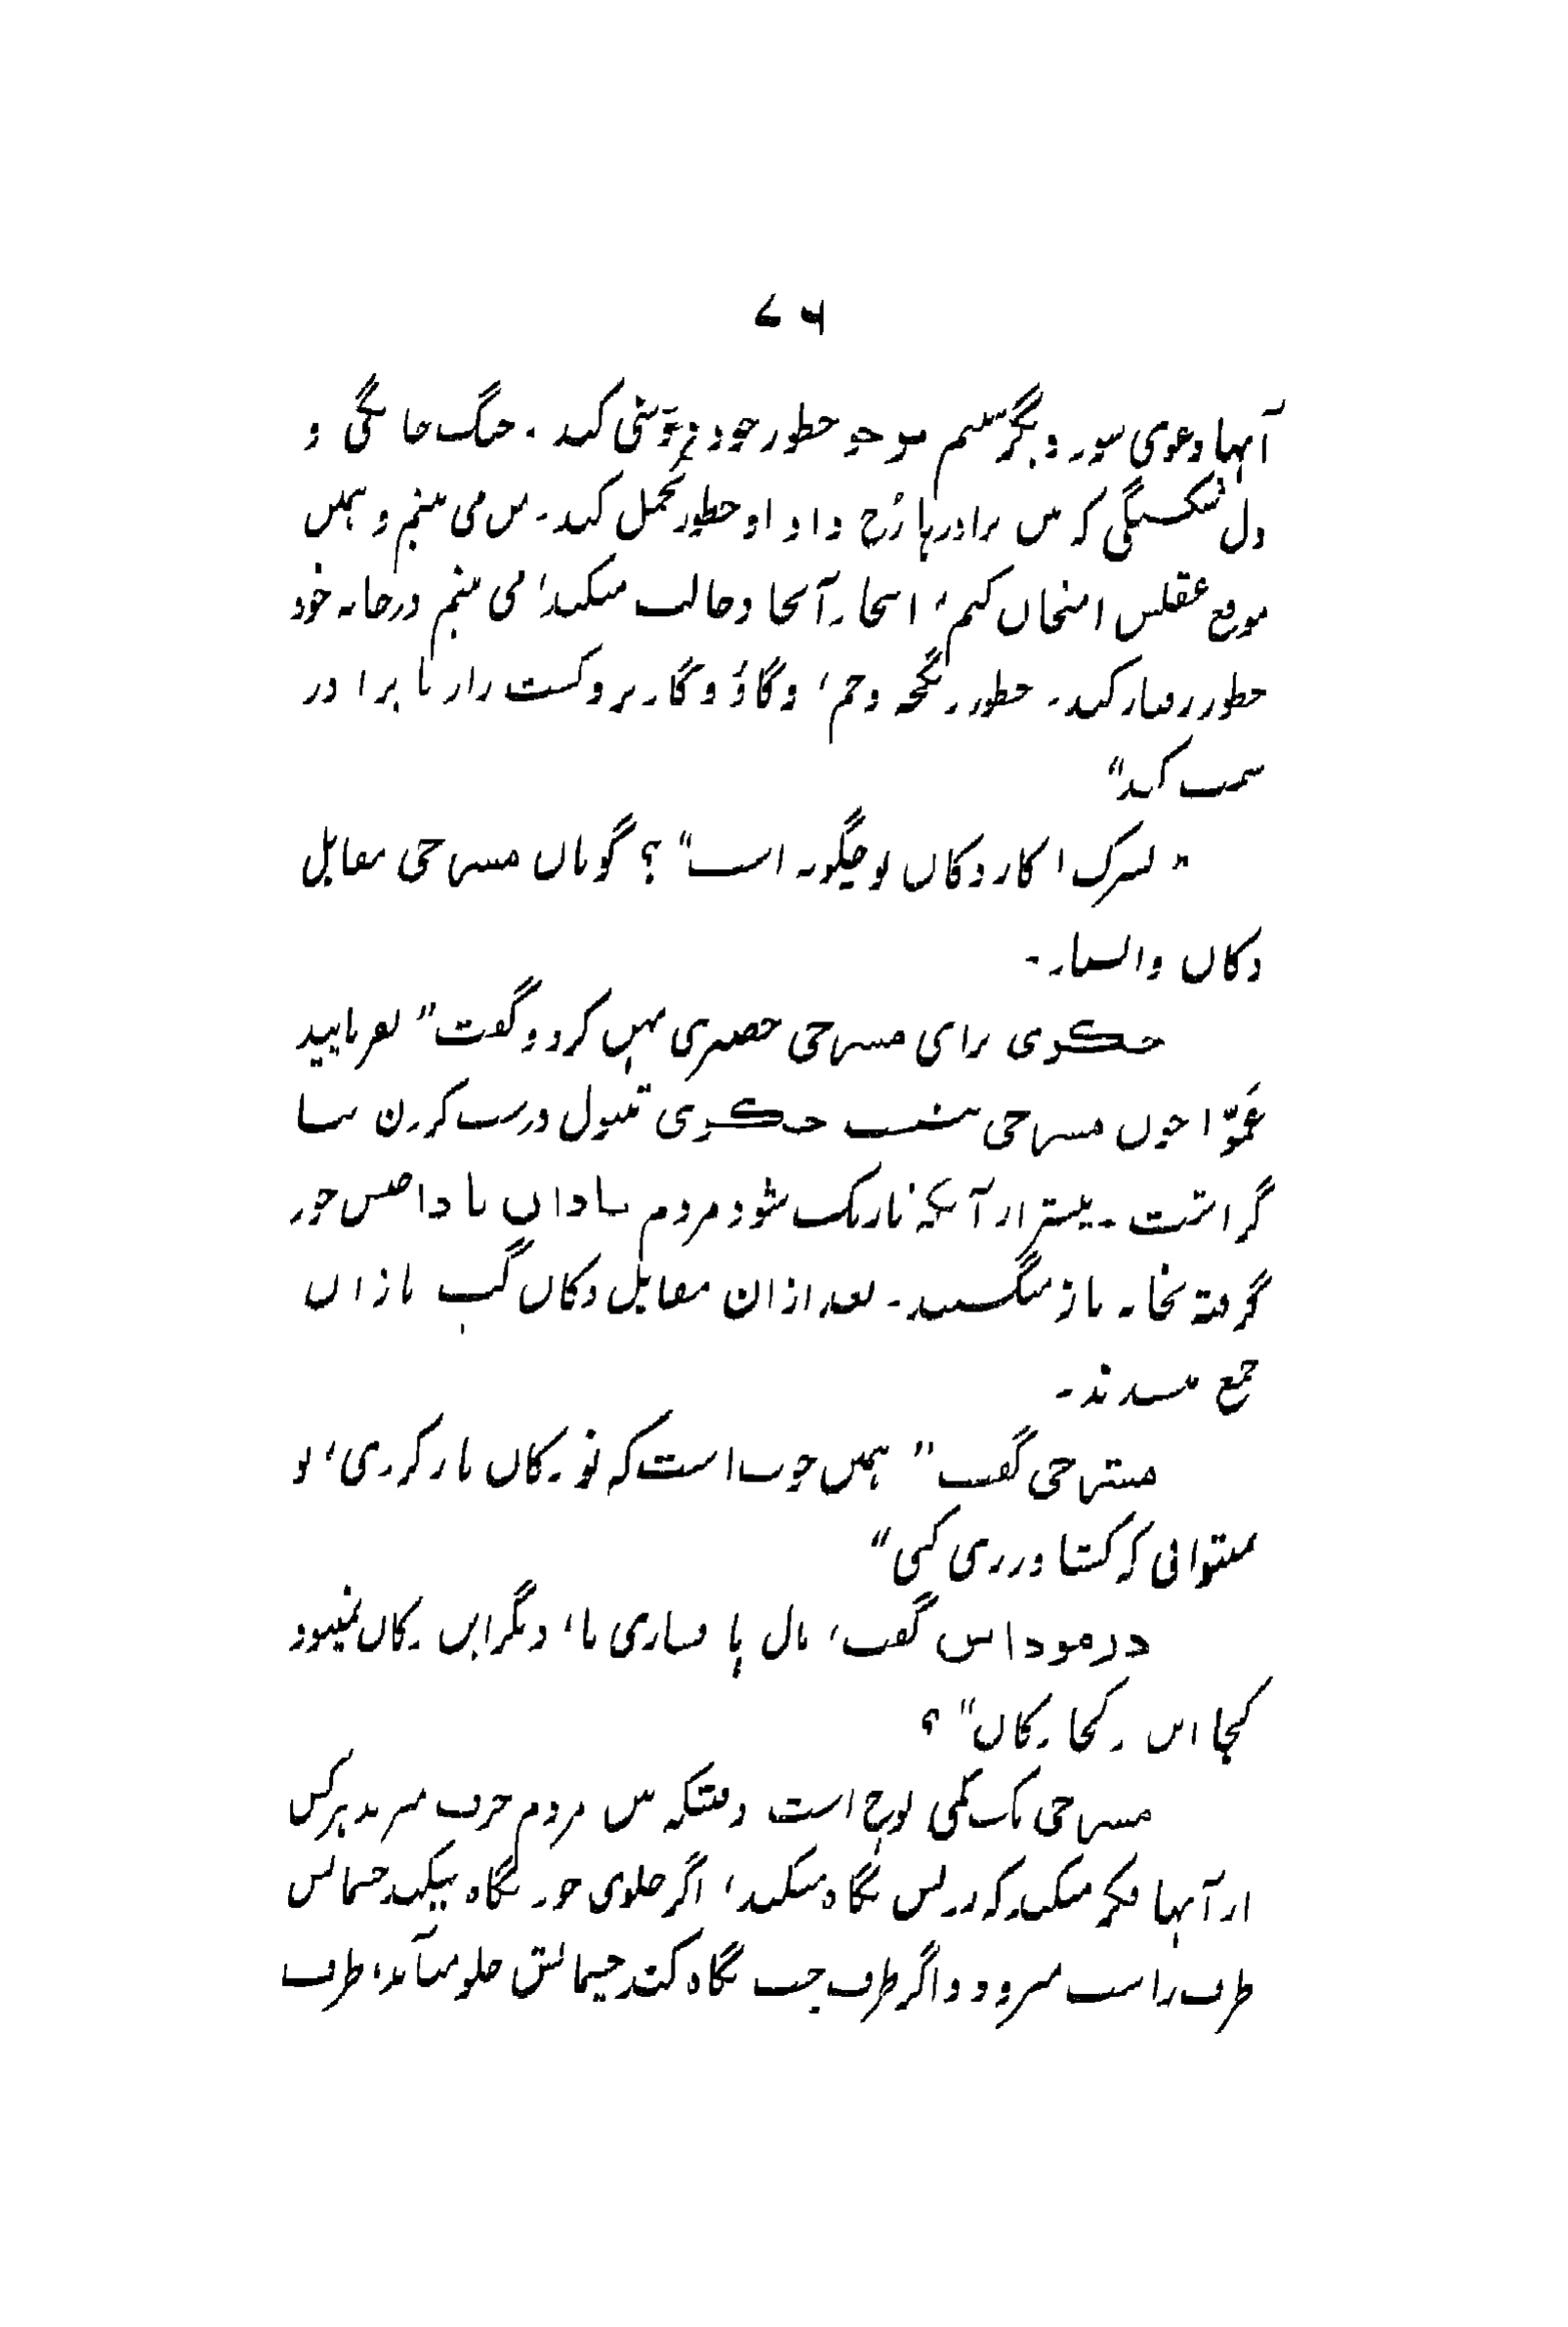 ۷۶
آنہا دعوی بود دیگر ببینم موجو چطور خود فروشی کند. جنگ خانگی و
دل شکستگی کہ بین برادرہا رُخ داد او چطور تحمل کند۔ من می بینم و ہمین
موقع عقلش امتحان کنم، اینجا۔ آنجا دخالت میکند، می بینم درخانہ خود
چطور رفتار کند۔ چطور دیگچہ و خم، و گاؤ و گاری و کشت را تا برادر
قسمت کند"
"پسرک! کار دکان تو چگونہ است"؟ گویان مسرجی مقابل
دکان وا ایستاد۔
حکوی برای مسرجی حصیری پہن کرد و گفت" بفرمایید
عَموّ! چون مسرجی نشست حکوی تنبول درست کردن بنا
گذاشت۔ بیشتر از آنکہ تاریک شود مردم نادان با داهس خود
گرفتہ بخانہ باز میگشتند۔ بعد ازان مقابل دکان گپ بازان
جمع میشدند۔
مسرجی گفت" ہمین خوب است کہ تو دکان باز کردی، تو
میتوانی کہ کشاورزی کنی"
درموداس گفت، مال ہا بیاری یا، دیگر این دکان نمیشود
کجا این دکجا دکان"؟
مسرجی یک کمی لوچ است وقتیکہ بین مردم حرف میزند ہرکس
از آنہا فکر میکند کہ درویش نگاہ میکند، اگر جلوی خود نگاہ بیکند چشمانش
طرف راست میرود و اگر طرف چپ نگاہ کند چشمانش جلو میآید، طرف